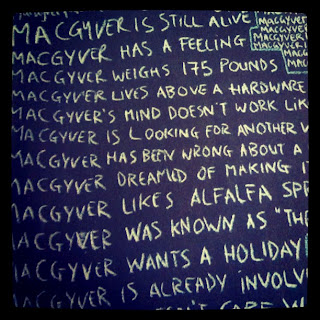 MACGYVER IS STILL ALIVE
MACGYVER HAS A FEELING
MACGYVER WEIGHS 175 POUNDS
MACGYVER LIVES ABOVE A HARDWARE
MACGYVER'S MIND DOESN'T WORK LIK
MACGYVER IS LOOKING FOR ANOTHER
MACGYVER HAS BEEN WRONG ABOUT A
MACGYVER DREAMED OF MAKING IT
MACGYVER LIKES ALFALFA SPR
MACGYVER WAS KNOWN AS "THE
MACGYVER WANTS A HOLIDAY
MACGYVER IS ALREADY INVOLV
MACGYVER
MACGYVER
MACGYVER
MACGYVER